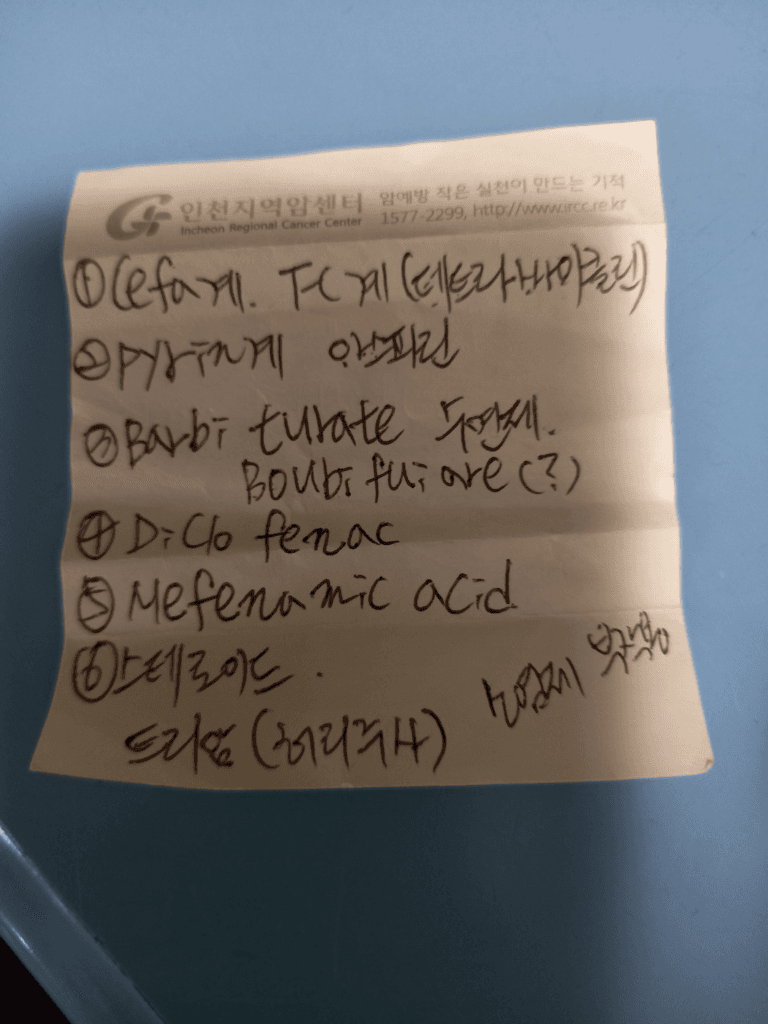 인천지역암센터 암예방 작은 실천이 만드는 기적
Incheon Regional Cancer Center 1577-2299, http://www.ircc.re.kr
① Cefa계. T-C계 (테트라싸이클린)
② pyrin계 아스피린
③ Barbi turate 수면제.
Boubifuiore(?)
④ Diclo fenac
⑤ Mefenamic acid
⑥ 스테로이드.
트리암 (허리주사)
소염제